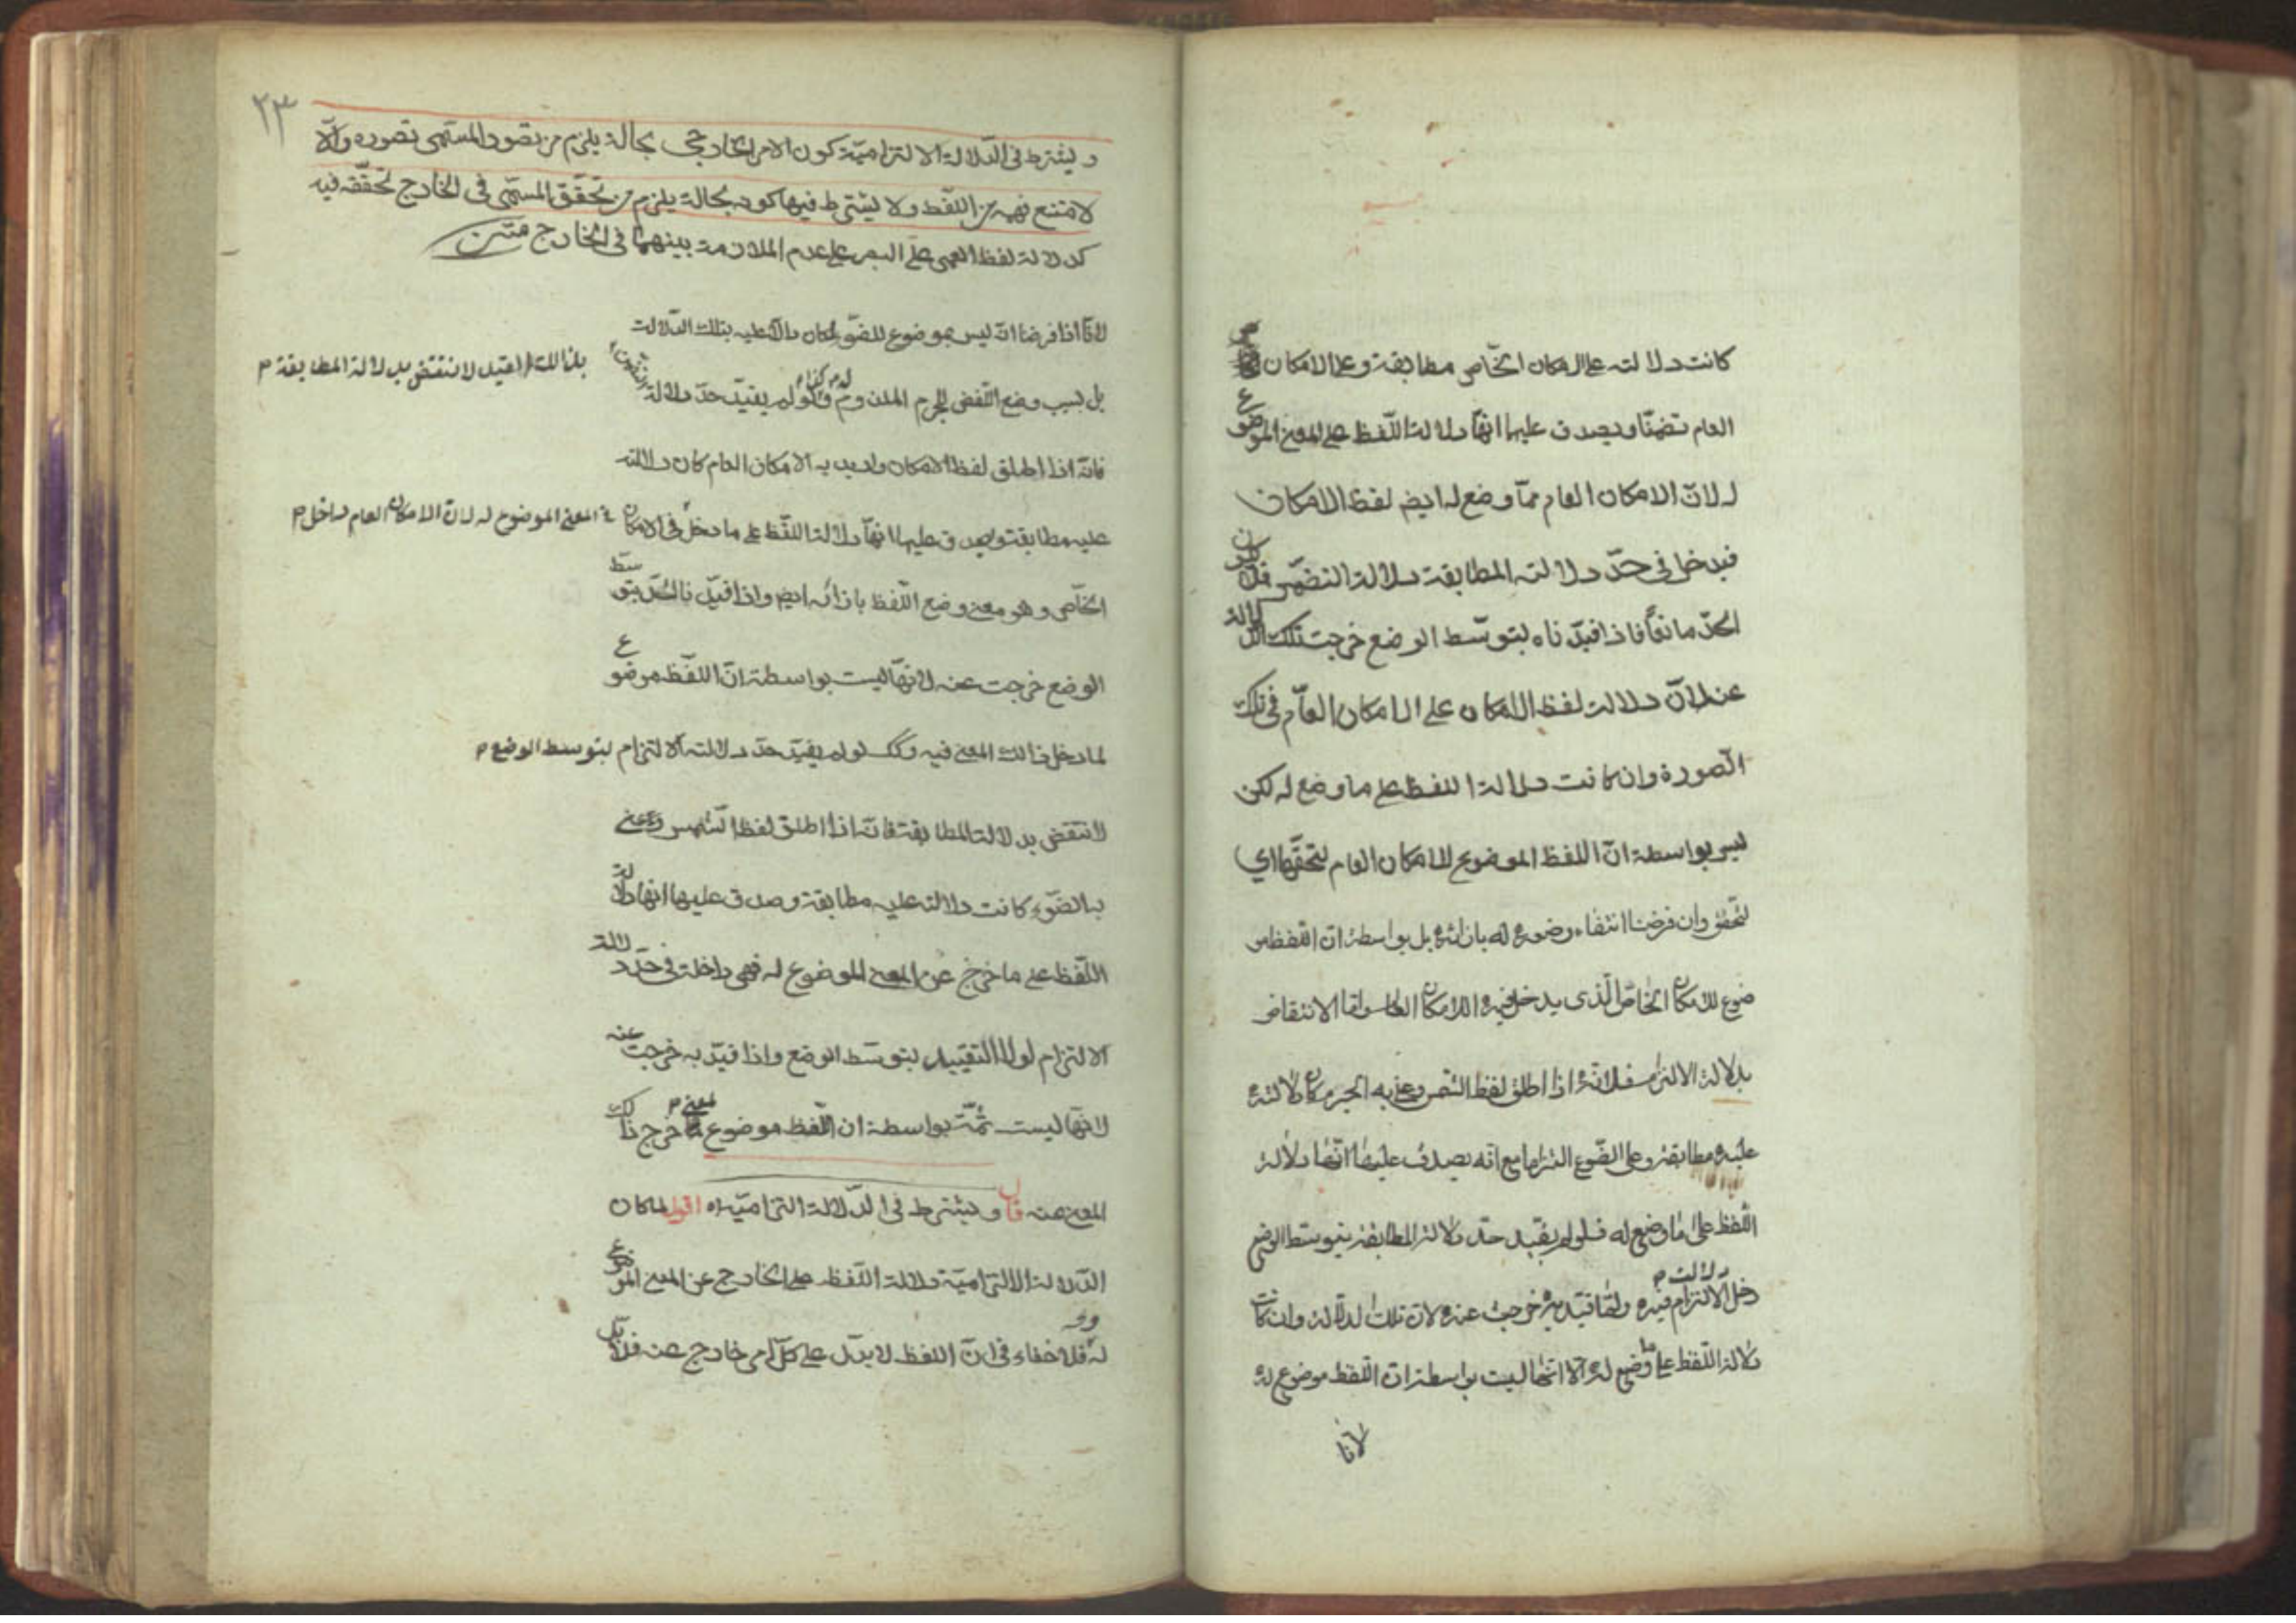 كانت دلالته على الامكان الخاص مطابقة وعلى الامكان
العام تضمنا ويصدق عليها انها دلالة اللفظ على المعنى الموضوع
له لان الامكان العام مما وضع له ايضا لفظ الامكان
فيدخل في حد دلالته المطابقة دلالة التضمن فلا يكون
الحد مانعا فاذا قيدناه بتوسط الوضع خرجت تلك الدلالة
عنه لان دلالة لفظ الامكان على الامكان العام في تلك
الصورة وان كانت دلالة اللفظ على ما وضع له لكن
ليس بواسطة ان اللفظ الموضوع للامكان العام لتحققها اي
لتحقق وان فرضنا انتفاء وضوعه له بازائه بل بواسطة ان اللفظ مو
ضوع للامكان الخاص الذى يدخل فيه الامكان العام واما الانتقاض
بدلالة الالتزام فلانه اذا اطلق لفظ الشمس وعنى به الجرم كان دلالته
عليه مطابقة وعلى الضوء التزاما مع انه يصدق عليها انها دلالة
اللفظ على ما وضع له فلو لم يقيد حد دلالة المطابقة بتوسط الوضع
دخل دلالت م الالتزام فيه ولما قيد به خرجت عنه لان تلك الدلالة وان كانت
دلالة اللفظ على ما وضع له الا انها ليست بواسطة ان اللفظ موضوع له
لانا
٢٣
ويشترط في الدلالة الالتزامية كون الامر الخارجي بحالة يلزم من تصور المسمى تصوره والا
لامتنع فهمه من اللفظ ولا يشترط فيها كونه بحالة يلزم من تحقق المسمى في الخارج تحققه فيه
كدلالة لفظ العمى على البصر على عدم الملازمة بينهما في الخارج متن
لانا اذا فرضنا انه ليس بموضوع للضوء لكان دالا عليه بتلك الدلالت
بل بسبب وضع اللفض للجرم الملزوم له م وكذا م لو لم يقيد حد دلالة
بذالك القيد لانتقض بدلالة المطابقة م
فانه اذا اطلق لفظ الامكان واريد به الامكان العام كان دلالته
عليه مطابقة ويصدق عليها انها دلالة اللفظ على ما دخل في الامكان
في المعنى الموضوع له لان الامكان العام داخل م
الخاص وهو معنى وضع اللفظ بازائه ايضا واذا قيد نا الحد بتوسط
الوضع خرجت عنه لانها ليست بواسطة ان اللفظ موضوع
لما دخل ذالك المعنى فيه وكك لو لم يقيد حد دلالته الالتزام بتوسط الوضع م
لانتقض بدلالت المطابقة فانه اذا اطلق لفظ الشمس وعنى
به الضوء كانت دلالته عليه مطابقة وصدق عليها انها دلالة
اللفظ على ما خرج عن المعنى الموضوع له فهى داخلة في حد دلالة
الالتزام لولا التقييد بتوسط الوضع واذا قيد به خرجت عنه
لانها ليست ثمة بواسطة ان اللفظ موضوع لمعنى م خرج ذلك
المعنى عنه قال ويشترط في الدلالة التزامية اه اقول لما كان
الدلالة الالتزامية دلالة اللفظ على الخارج عن المعنى الموضوع
له فلا خفاء في ان اللفظ لا يدل على كل امر خارج عنه فلا بد